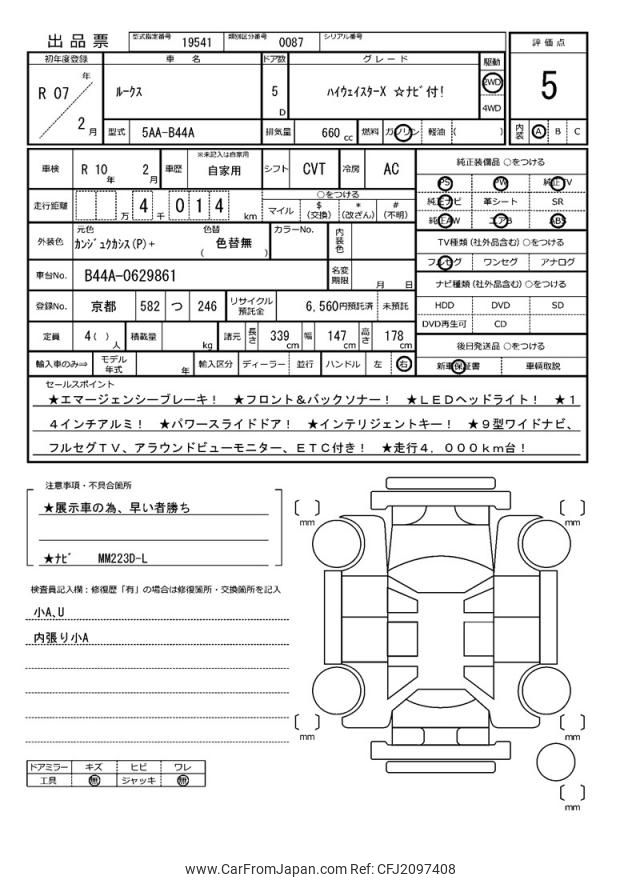 出品票
型式指定番号 19541 類別区分番号 0087 シリアル番号
初年度登録 車名 ドア数 グレード 駆動 評価点
R 07 年 2 月
ルークス 5 D ハイウェイスターX ☆ナビ付! 2WD 4WD
5
型式 5AA-B44A 排気量 660 cc 燃料 ガソリン 軽油 ( ) 内装 A B C
車検 R 10 年 2 月 車歴 ※未記入は自家用 自家用 シフト CVT 冷房 AC
純正装備品 ○をつける
PS PW 純正TV
純正ナビ 革シート SR
純正AW エアB ABS
走行距離 万 4 千 0 1 4 km
○をつける
マイル $ (交換) * (改ざん) # (不明)
外装色 元色 カンジュクカシス(P)+ 色替 ( 色替無 ) カラーNo. 内装色
TV種類 (社外品含む) ○をつける
フルセグ ワンセグ アナログ
車台No. B44A-0629861 名変期限 月 日
ナビ種類 (社外品含む) ○をつける
HDD DVD SD
DVD再生可 CD
登録No. 京都 582 つ 246 リサイクル預託金 6,560円預託済 未預託
定員 4( ) 人 積載量 kg 諸元 長さ 339 cm 幅 147 cm 高さ 178 cm
後日発送品 ○をつける
新車保証書 車輌取説
輸入車のみ⇒ モデル年式 年 輸入区分 ディーラー 並行 ハンドル 左 右
セールスポイント
★エマージェンシーブレーキ! ★フロント&バックソナー! ★LEDヘッドライト! ★1
4インチアルミ! ★パワースライドドア! ★インテリジェントキー! ★9型ワイドナビ、
フルセグTV、アラウンドビューモニター、ETC付き! ★走行4,000km台!
注意事項・不具合箇所
★展示車の為、早い者勝ち
★ナビ MM223D-L
検査員記入欄:修復歴「有」の場合は修復箇所・交換箇所を記入
小A、U
内張り小A
mm
mm
mm
mm
mm
ドアミラー キズ ヒビ ワレ
工具 無 ジャッキ 無
www.CarFromJapan.com Ref: CFJ2097408